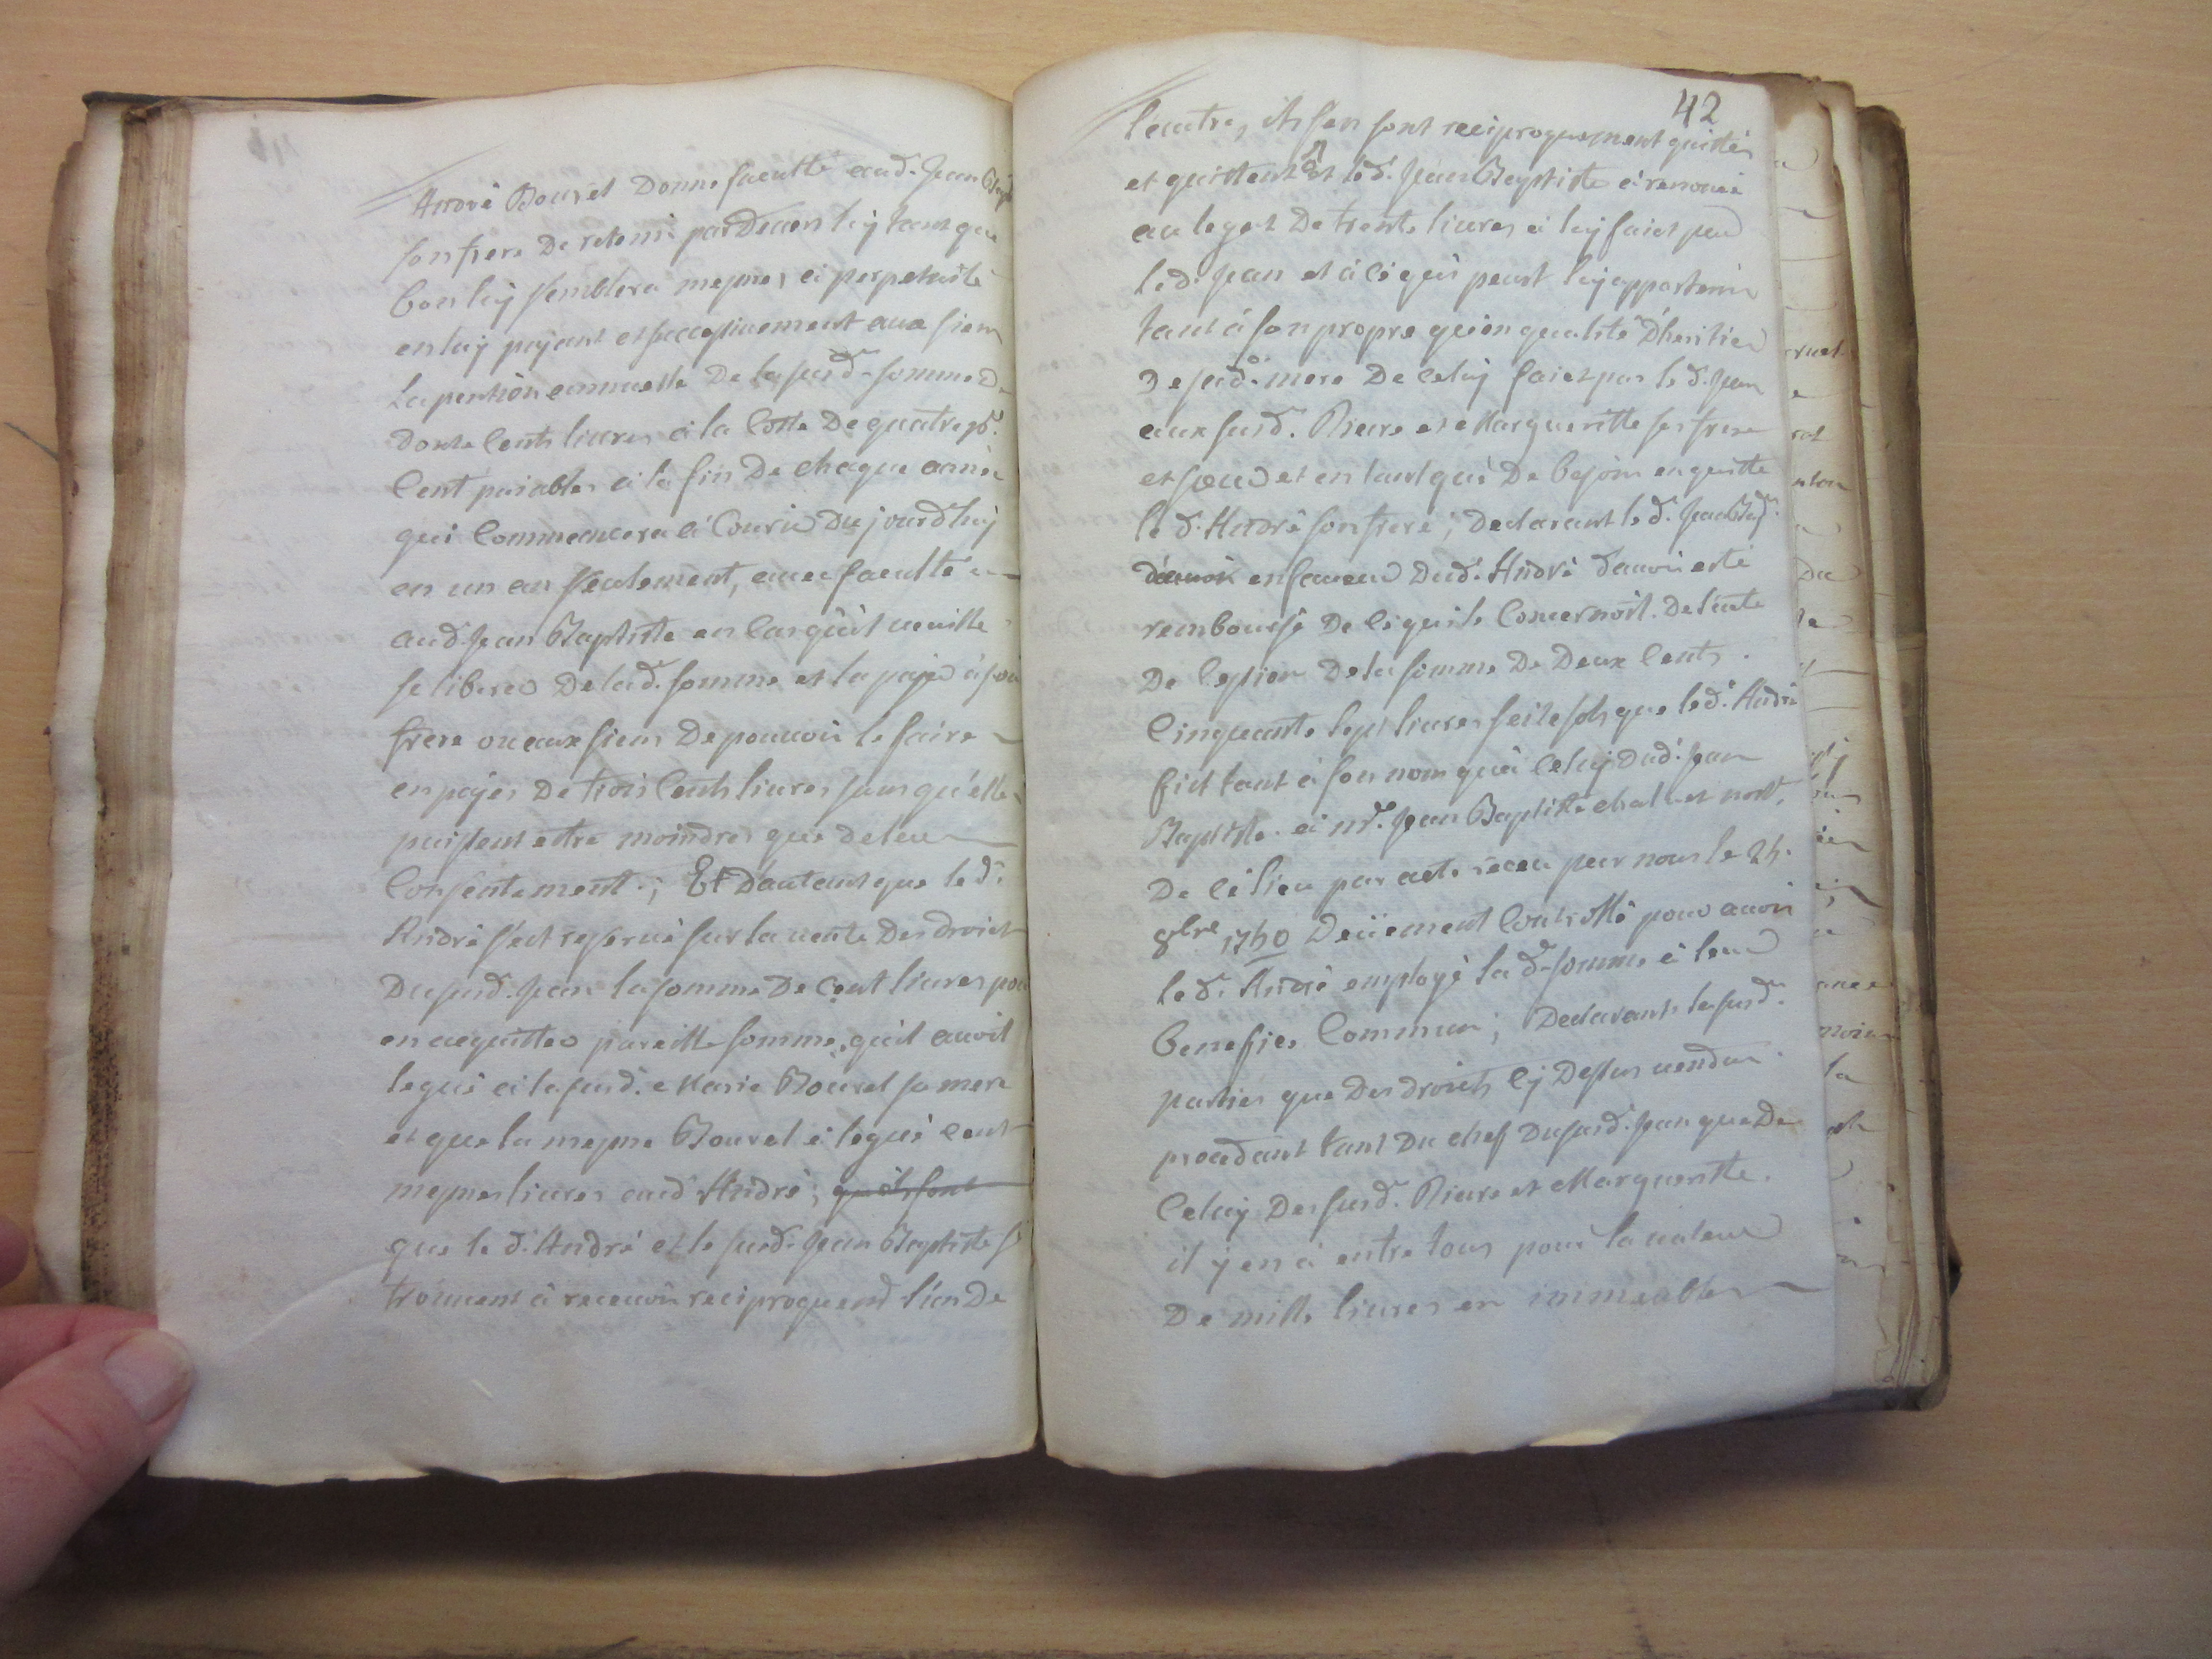 André Bouvet Donne faculté aud. Jean Bapt
son frere De retenir par Devers luy tant que
bon luy semblera mesmes à perpetuité
en luy payant et successivement aux siens
La pention annuelle De la susd. somme De
Douze Cents livres à la Cotte De quatre pr.
Cent paiables à la fin De chaque année
qui Commencera à Courir Dujourdhuy
en un an seulement, avec faculté
aud. Jean Baptiste en Cas quil veuille
se liberer De lad. somme et la payer à son
frere ou aux siens De pouvoir le faire
en payes De trois Cents livres sans qu'elles
puissent estre moindres que de leur
Consentement; Et Dautant que le d.
André s'est reservé sur la vente Des droits
Du susd. Jean la somme De Cent livres pour
en acquitter pareille somme, quil avoit
legué à la susd. Marie Bouvet sa mere
et que la mesme Bouvet à legué cent
mesmes livres aud André; qu'ils sont
que le d. André et le susd. Jean Baptiste s
trouvent à recevoir reciproquemt l'un De
42
l'autre, ils s'en sont reciproquement quittés
et quittent et led. Jean Baptiste à renoncé
au legat De trente livres à luy fait par
led. Jean et à ce qui peut luy appartenir
tant à son propre qu'en qualité D'heritier
De sad. mere De celuy fait par le d. Jean
aux susd. Pierre et Margueritte ses frere
et soeur et en tant que De besoin en quitte
le d. André son frere; Declarant le d. Jean Bapt.
d'avoir en faveur Dud. André d'avoir esté
remboursé De ce qui le Concernoit De l'acte
De Cession De la somme De Deux Cents
Cinquante sept livres seize sols que led. André
fit tant à son nom qu'à Celuy Dud. Jean
Baptiste à mr. Jean Baptiste nore.
De Ce lieu par acte receu par nous le 24.
8bre 1740 Deüement Controllé pour avoir
le d. André employé la d. somme à leur
benefice Commun; Declarants les susd.
parties que Des droits Cy Dessus vendus
procedant tant Du chef Dususd. Jean que De
Celuy Des susd. Pierre et Margueritte.
il y en à entre tous pour la valeur
De mille livres en immeubles